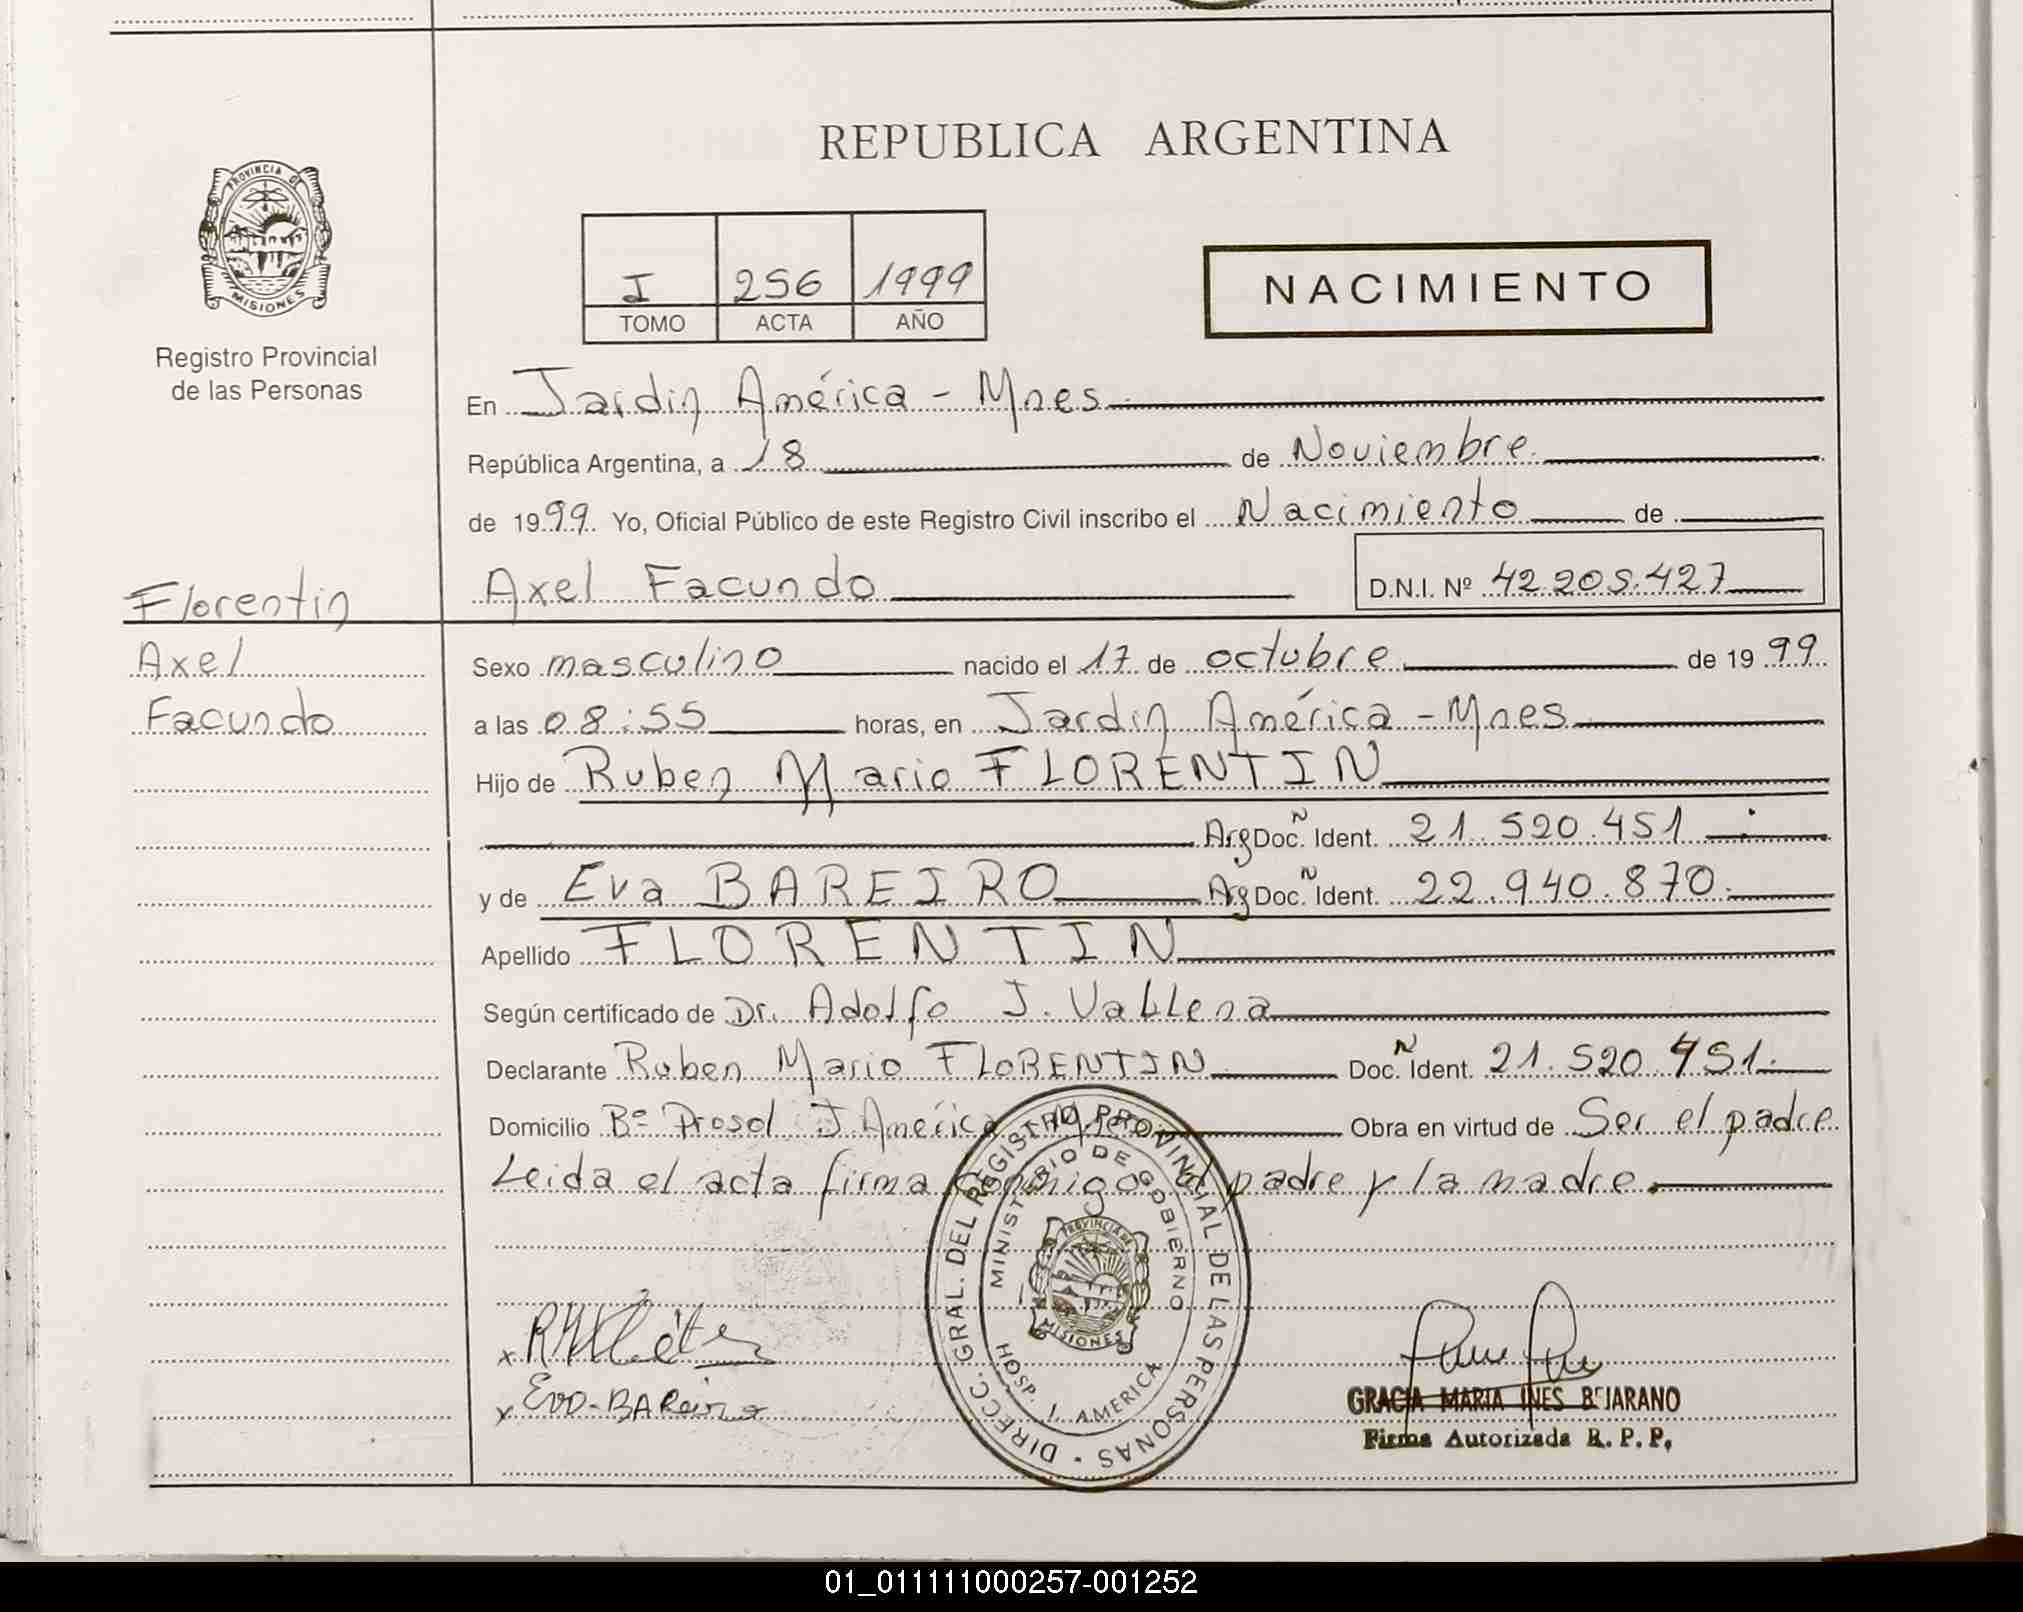 REPUBLICA ARGENTINA
PROVINCIA DE
MISIONES
Registro Provincial
de las Personas
I 256 1999
TOMO ACTA AÑO
NACIMIENTO
En Jardin América - Mnes.
República Argentina, a 18 de Noviembre.
de 1999. Yo, Oficial Público de este Registro Civil inscribo el Nacimiento de
Axel Facundo D.N.I. Nº 42.205.427
Florentin
Axel
Facundo
Sexo masculino nacido el 17 de octubre de 1999.
a las 08:55 horas, en Jardin América - Mnes
Hijo de Ruben Mario FLORENTIN
Arg Doc. Ident. 21.520.451
y de Eva BAREIRO Arg Doc. Ident. 22.940.870.
Apellido FLORENTIN
Según certificado de Dr. Adolfo J.
Declarante Ruben Mario FLORENTIN Doc. Ident. 21.520.451.
Domicilio Bº Prosol J América Mnes Obra en virtud de Ser el padre
Leida el acta firma conmigo el padre y la madre.
DIRECC. GRAL. DEL REGISTRO PROVINCIAL DE LAS PERSONAS
MINISTERIO DE GOBIERNO
PROVINCIA DE
MISIONES
HOSP. J. AMERICA
x
x Eva-BAReiro
GRACIA MARIA INES BEJARANO
Firma Autorizada R.P.P.
01_011111000257-001252